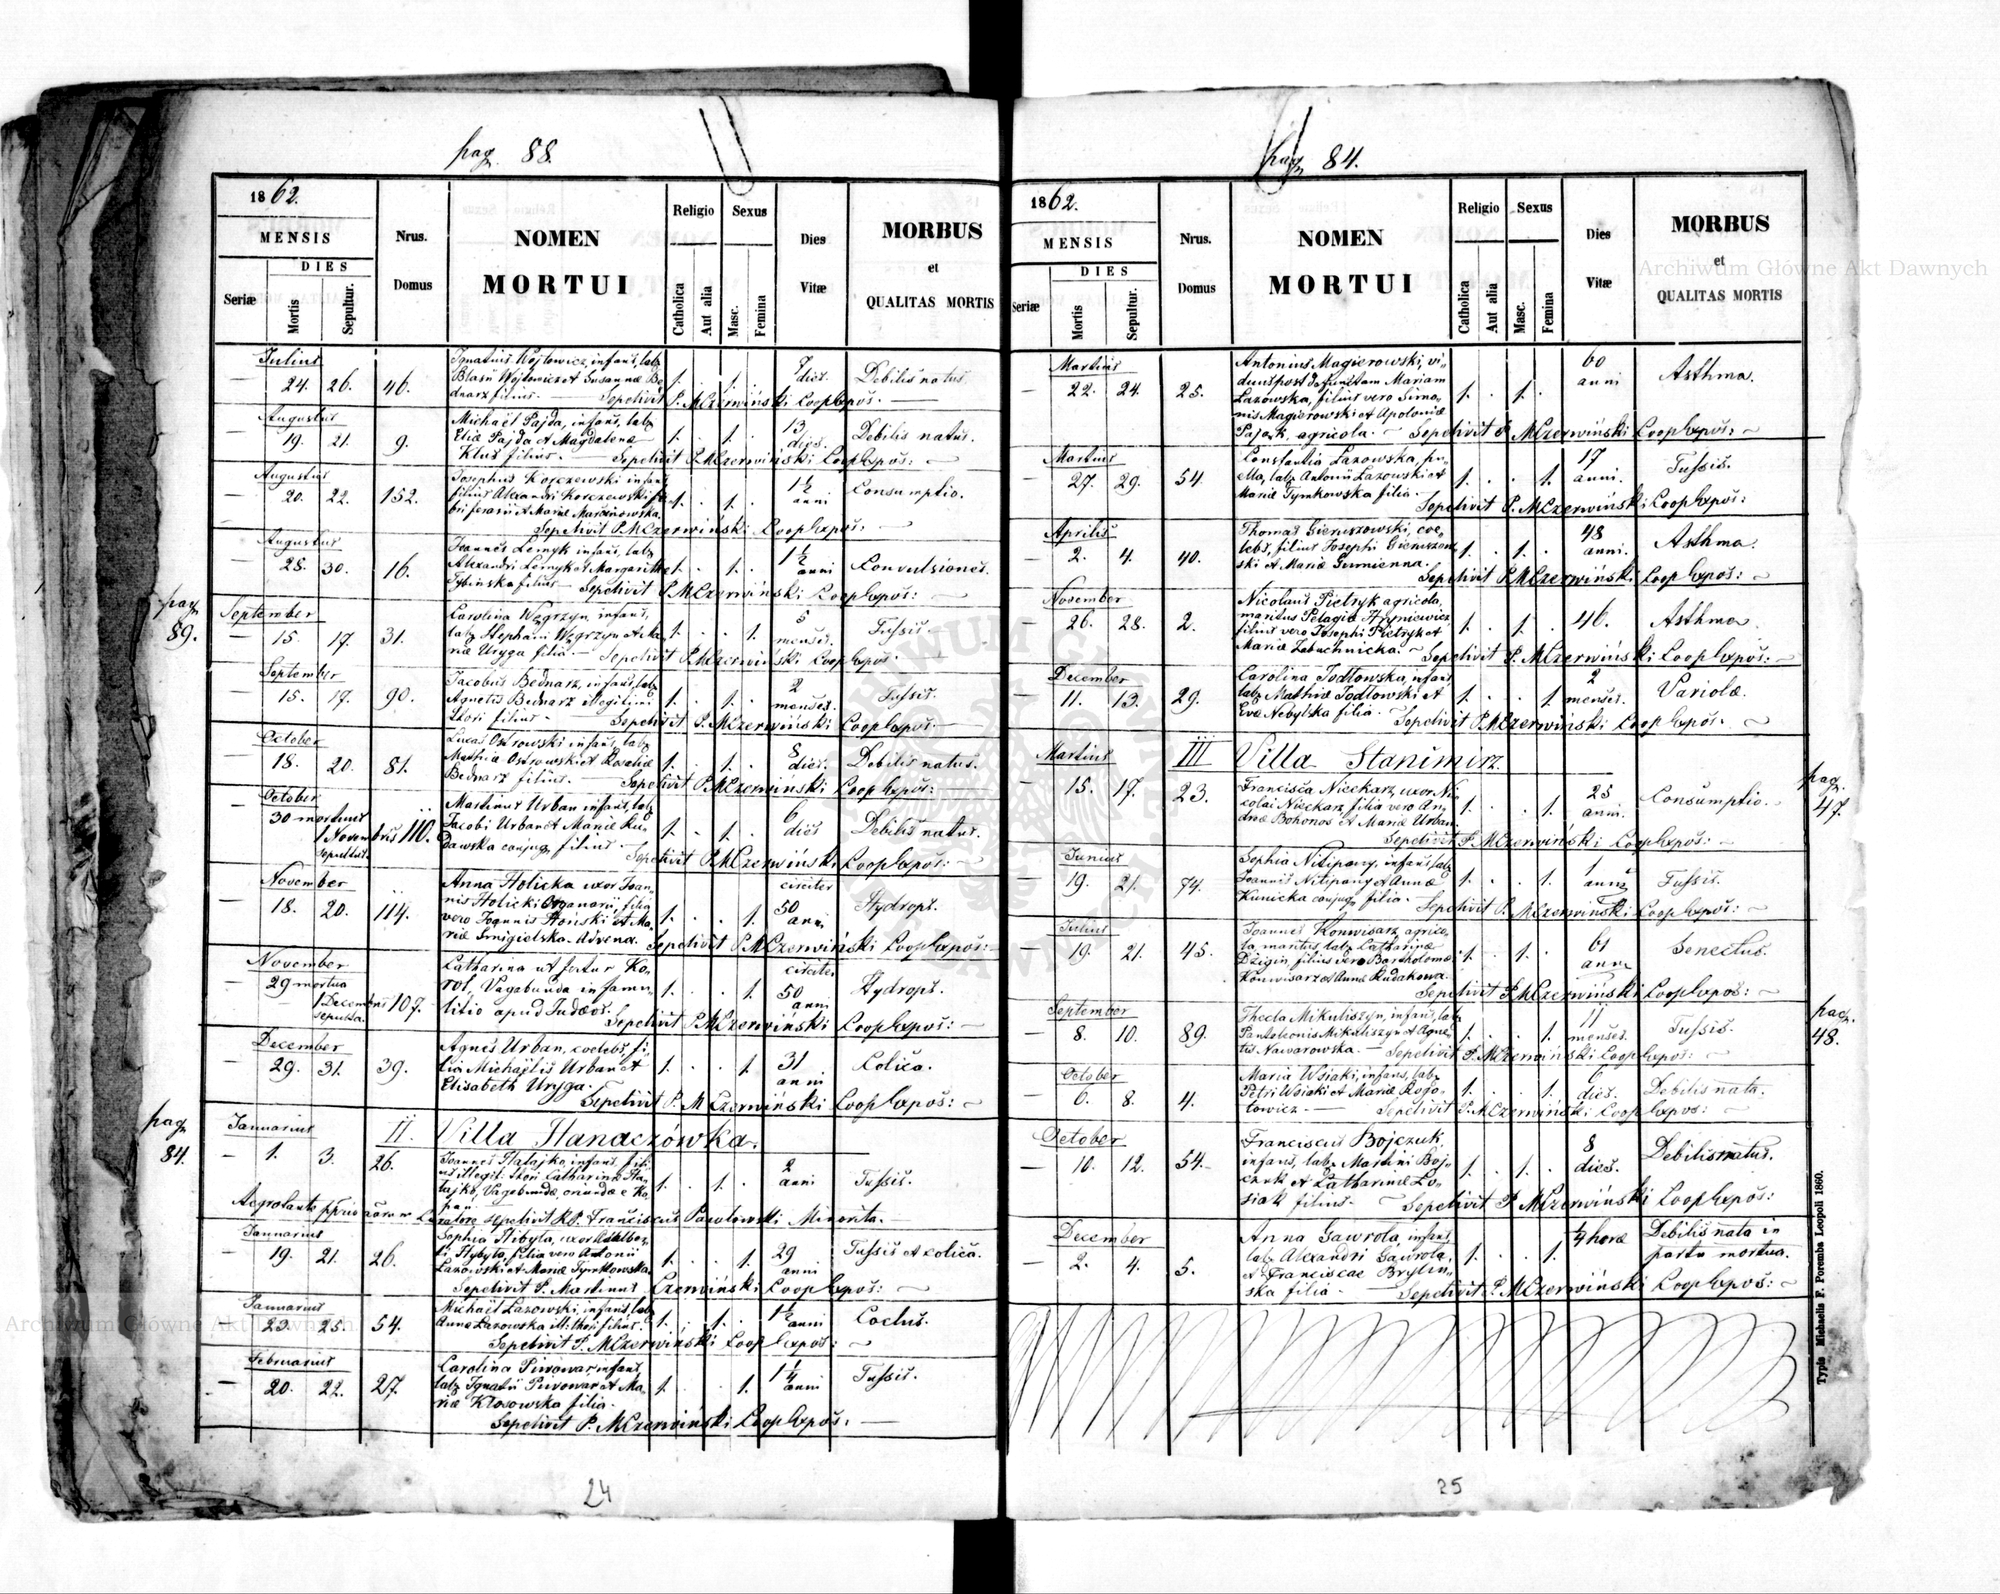 pag. 88.
1862.
MENSIS
DIES
Seriæ
Mortis
Sepultur.
Nrus.
Domus
NOMEN
MORTUI
Religio
Catholica
Aut alia
Sexus
Masc.
Femina
Dies
Vitæ
MORBUS
et
QUALITAS MORTIS
Julius
— 24. 26. 46.
Ignatius Wojtowicz, infans, lab.
Blasii Wojtowicz et Susannæ Be-
dnarz filius. — Sepelivit P. MCzerwiński CoopExpos: —
1. . 1. .
7 dies.
Debilis natus.
Augustus
— 19. 21. 9.
Michaël Pajda, infans, lab.
Eliæ Pajda et Magdalenæ
Klus filius. — Sepelivit P. MCzerwiński CoopExpos: —
1. . 1. .
13 dies.
Debilis natus.
Augustus
— 20. 22. 152.
Josephus Korczewski infans
filius Alexandri Korczewski fa-
bri ferarii et Mariæ Marcinowska.
Sepelivit P. MCzerwiński CoopExpos: —
1. . 1. .
1½ anni
Consumptio.
Augustus
— 28. 30. 16.
Joannes Lernyk infans, lab.
Alexandri Lernyk et Margarithæ
Tybińska filius — Sepelivit P. MCzerwiński CoopExpos: —
1. . 1. .
1½ anni
Convulsiones.
pag. 89.
September
— 15. 17. 31.
Carolina Węgrzyn, infans,
lab. Stephani Węgrzyn et Ma-
riæ Uryga filia. — Sepelivit P. MCzerwiński CoopExpos.
1. . . 1.
5 menses.
Tussis.
September
— 15. 17. 90.
Jacobus Bednarz, infans, lab.
Agnetis Bednarz illegitimi
thori filius. — Sepelivit P. MCzerwiński CoopExpos: —
1. . 1. .
2 menses.
Tussis.
October
— 18. 20. 81.
Lucas Ostrowski infans, lab.
Mathiæ Ostrowski et Rosaliæ
Bednarz filius. — Sepelivit P. MCzerwiński CoopExpos: —
1. . 1. .
8 dies.
Debilis natus.
October
— 30 mortuus
1 Novembris 110.
sepultus.
Martinus Urban infans, lab.
Jacobi Urban et Mariæ Ru-
dawska conjug. filius. — Sepelivit P. MCzerwiński CoopExpos: —
1. . 1. .
6 dies
Debilis natus.
November
— 18. 20. 114.
Anna Holicka uxor Joan-
nis Holicki Organarii, filia
vero Joannis Słoński et Ma-
riæ Smigielska. Advena. Sepelivit P. MCzerwiński CoopExpos: —
1. . . 1.
circiter
50 anni
Hydrops.
November
— 29 mortua
1 Decembris 107.
sepulta.
Catharina ut fertur Ko-
rol, Vagabunda in famu-
litio apud Judæos. Sepelivit P. MCzerwiński CoopExpos: —
1. . . 1.
circiter
50 anni
Hydrops.
December
— 29. 31. 39.
Agnes Urban, coelebs, fi-
lia Michaëlis Urban et
Elisabeth Uryga.
Sepelivit P. MCzerwiński CoopExpos: —
1. . . 1.
31 anni
Colica.
pag. 84.
II. Villa Hanaczówka.
Januarius
— 1. 3. 26.
Joannes Hatajko, infans, fili-
us illegit. thori Catharinæ Ha-
tajko, Vagabundæ, oriundæ e
1. . 1. .
2 anni
Tussis.
sepelivit R.P. Franciscus Pawłowski Minorita.
Januarius
— 19. 21. 26.
Sophia Hibyla, uxor
Hybyla, filia vero Antonii
Lazowski et Mariæ Tymkowska.
Sepelivit P. Martinus Czerwiński CoopExpos: —
1. . . 1.
29 anni
Tussis et colica.
Januarius
— 23. 25. 54.
Michaël Lazowski, infans, lab.
Annæ Lazowska ill. thori filius.
Sepelivit P. MCzerwiński CoopExpos: —
1. . 1. .
1½ anni
Coctus.
Februarius
— 20. 22. 27.
Carolina Piwowar infans,
lab. Ignatii Piwowar et Ma-
riæ Kłosowska filia.
Sepelivit P. MCzerwiński CoopExpos: —
1. . . 1.
1¼ anni
Tussis.
24
pag. 84.
1862.
MENSIS
DIES
Seriæ
Mortis
Sepultur.
Nrus.
Domus
NOMEN
MORTUI
Religio
Catholica
Aut alia
Sexus
Masc.
Femina
Dies
Vitæ
MORBUS
et
QUALITAS MORTIS
Martius
— 22. 24. 25.
Antonius Magierowski, vi-
duus post defunctam Mariam
Lazowska, filius vero Simo-
nis Magierowski et Apoloniæ
Pająk, agricola. — Sepelivit P. MCzerwiński CoopExpos: —
1. . 1. .
60 anni
Asthma.
Martius
— 27. 29. 54.
Constantia Lazowska, pu-
ella, lab. Antonii Lazowski et
Mariæ Tymkowska filia.
Sepelivit P. MCzerwiński CoopExpos:
1. . . 1.
17 anni.
Tussis.
Aprilis
— 2. 4. 40.
Thomas Gieruszowski, coe-
lebs, filius Josephi Gieruszow-
ski et Mariæ Gumienna.
Sepelivit P. MCzerwiński CoopExpos: —
1. . 1. .
48 anni.
Asthma.
November
— 26. 28. 2.
Nicolaus Pietryk agricola,
maritus Pelagiæ Hryniewicz
filius vero Josephi Pietryk et
Mariæ Zebuchnicka. — Sepelivit P. MCzerwiński CoopExpos: —
1. . 1. .
46.
Asthma.
December
— 11. 13. 29.
Carolina Jodłowska, infans
lab. Mathiæ Jodłowski et
Evæ Nebylska filia. — Sepelivit P. MCzerwiński CoopExpos: —
1. . . 1.
2 menses.
Variolæ.
III Villa Stanimirz.
pag. 47.
Martius
— 15. 17. 23.
Francisca Nieckarz, uxor Ni-
colai Nieckarz, filia vero An-
dreæ Bohonos et Mariæ Urban.
Sepelivit P. MCzerwiński CoopExpos: —
1. . . 1.
25 anni.
Consumptio.
Junius
— 19. 21. 74.
Sophia Nitipany, infans, lab.
Joannis Nitipany et Annæ
Kunicka conjug. filia.
Sepelivit P. MCzerwiński CoopExpos: —
1. . . 1.
1 annus
Tussis.
Julius
— 19. 21. 45.
Joannes Konwisarz, agrico-
la, maritus lab. Catharinæ
Dżigin, filius vero Bartholomæi
Konwisarz et Annæ Rudakowa.
Sepelivit P. MCzerwiński CoopExpos: —
1. . 1. .
61 anni
Senectus.
pag. 48.
September
— 8. 10. 89.
Thecla Mikuliszyn, infans, lab.
Panteleonis Mikuliszyn et Agne-
tis Nawarowska. — Sepelivit P. MCzerwiński CoopExpos: —
1. . . 1.
11 menses.
Tussis.
October
— 6. 8. 4.
Maria Wsiaki, infans, lab.
Petri Wsiaki et Mariæ Rogo-
towicz. — Sepelivit P. MCzerwiński CoopExpos: —
1. . . 1.
6 dies.
Debilis nata.
October
— 10. 12. 54.
Franciscus Bojczuk,
infans, lab. Martini Boj-
czuk et Catharinæ Lo-
siak filius. — Sepelivit P. MCzerwiński CoopExpos:
1. . 1. .
8 dies.
Debilis natus.
December
— 2. 4. 5.
Anna Gawrola, infans,
lab. Alexandri Gawrola,
et Franciscae Brylin-
ska filia. — Sepelivit P. MCzerwiński CoopExpos: —
1. . . 1.
¼ horæ
Debilis nata in
partu mortua.
Typis Michaelis F. Poremba Leopoli 1860.
25
Archiwum Główne Akt Dawnych
Archiwum Główne Akt Dawnych